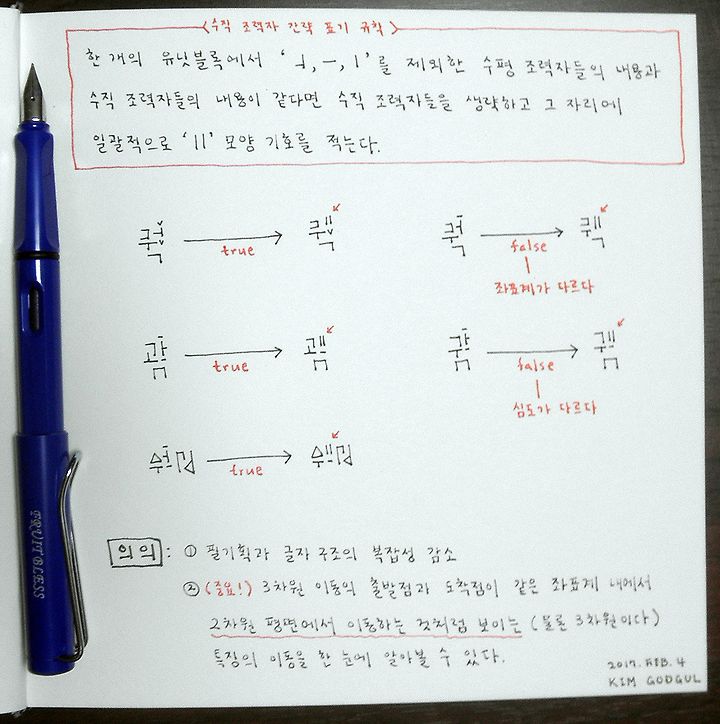 <수직 조력자 간략 표기 규칙>
한 개의 유닛블록에서 'ㅢ, ㅡ, ㅣ'를 제외한 수평 조력자들의 내용과
수직 조력자들의 내용이 같다면 수직 조력자들을 생략하고 그 자리에
일괄적으로 '||' 모양 기호를 적는다.
true
false
좌표계가 다르다
true
false
심도가 다르다
true
의의 : ① 필기획과 글자 구조의 복잡성 감소
② (중요!) 3차원 이동의 출발점과 도착점이 같은 좌표계 내에서
2차원 평면에서 이동하는 것처럼 보이는 (물론 3차원이다)
특징의 이동을 한 눈에 알아볼 수 있다.
2017. FEB. 4
KIM GODGUL
TRUIT BLESS